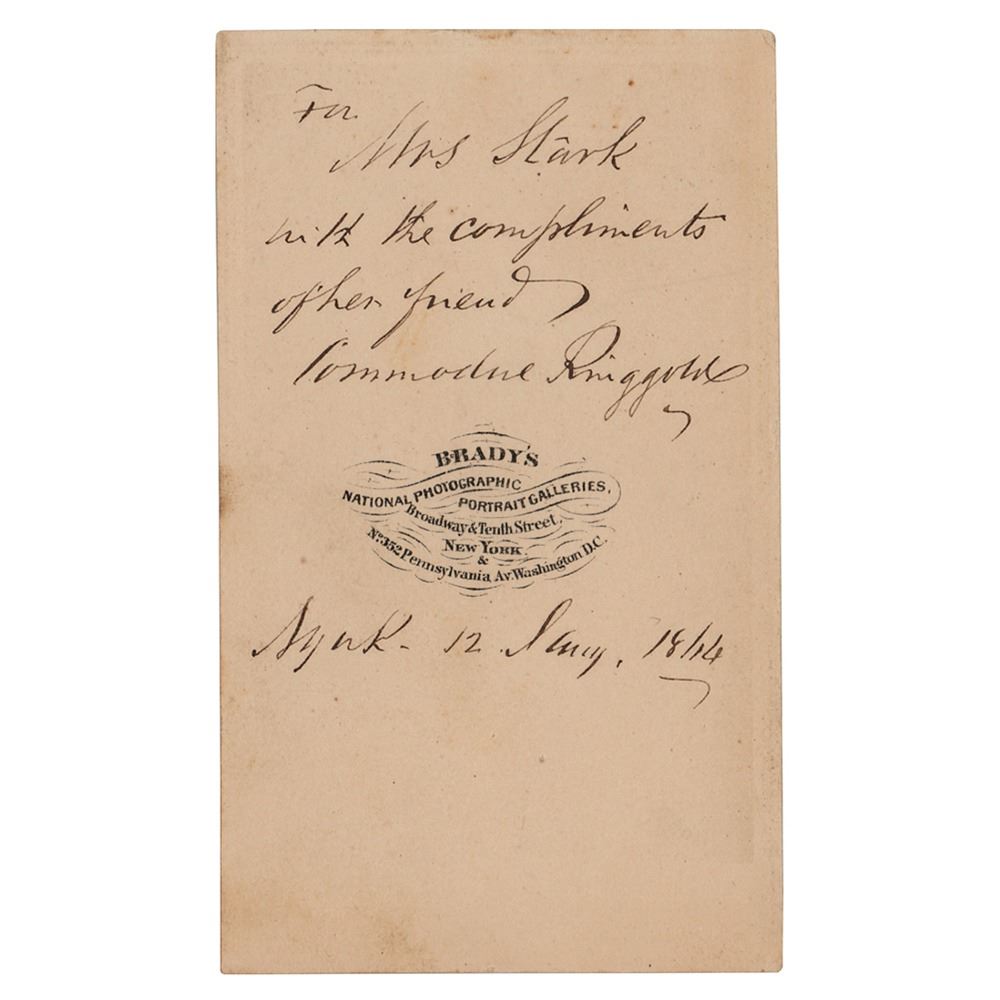 For
Mrs Stark
with the compliments
of her friend
Commodore Ringgold
BRADY'S
NATIONAL PHOTOGRAPHIC
PORTRAIT GALLERIES,
Broadway & Tenth Street,
NEW YORK
&
No. 352 Pennsylvania Av. Washington D.C.
NYork - 12 Jany, 1864